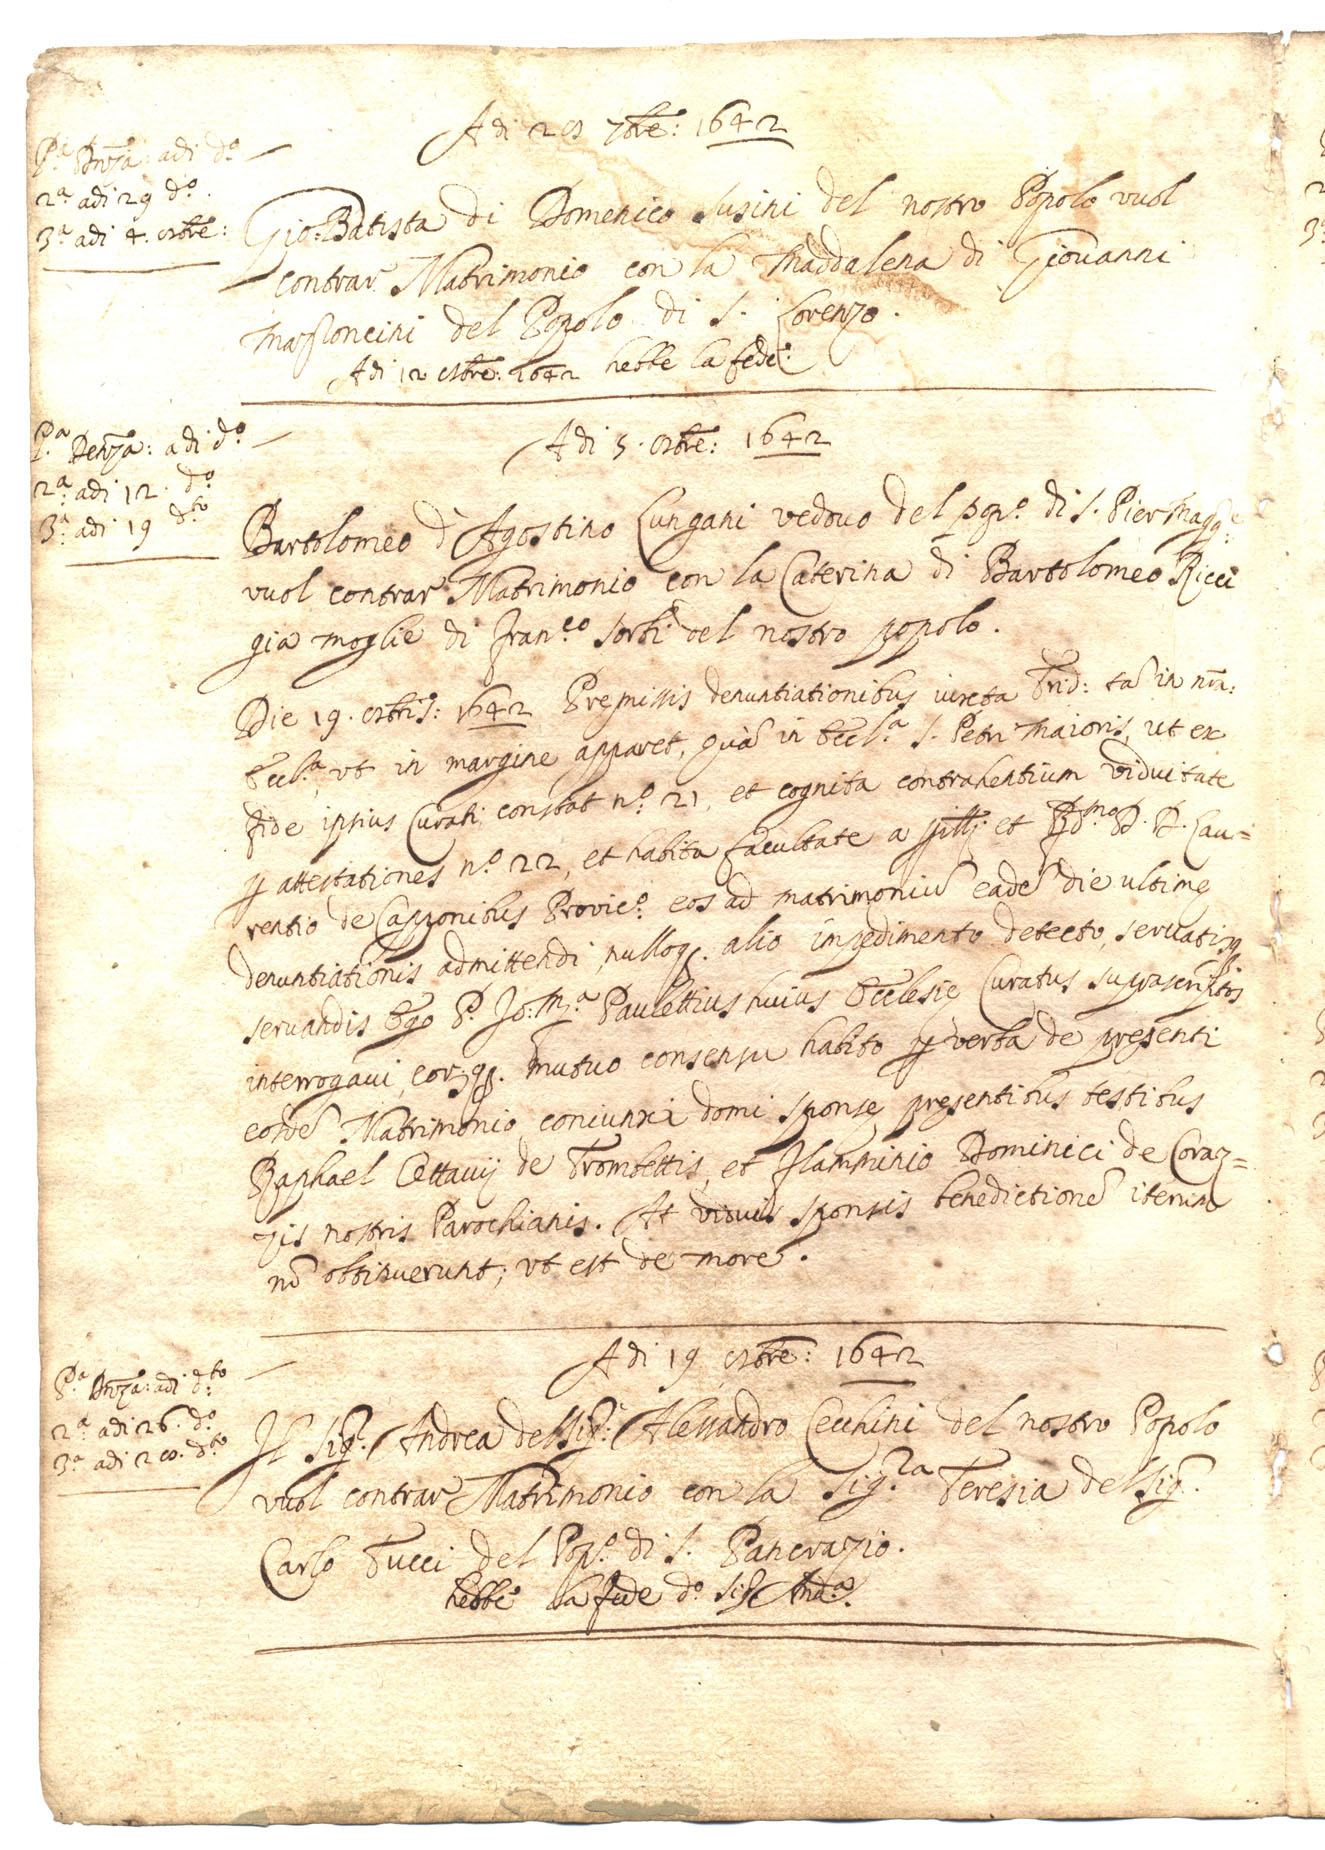 Adi 28 7bre: 1642
Pa Dnza: adi do
2a adi 29 do.
3a adi 4. 8bre:
Gio: Batista di Domenico Susini del nostro Popolo vuol
contrar Matrimonio con la Maddalena di Giovanni
del Popolo di S. Lorenzo.
Adi 12 8bre: 1642 hebbe la fede:
Adi 5. 8bre: 1642
P.a Denza: adi do
2a adi 12. do
3a adi 19 dto
Bartolomeo d'Agostino Lungani vedovo del popo. di S. Pier Magge
vuol contrar Matrimonio con la Caterina di Bartolomeo Ricci
gia moglie di Franco Sorti del nostro popolo.
Die 19. 8bris: 1642 Premissis denuntiationibus iuxta Trid: tā in nrā:
Eccla. vt in margine apparet, quā in Eccla. S. Petri Maioris, ut ex
fide ipsius Curati constat no. 21, et cognita contrahentium viduitate
p attestationes no. 22, et habita facultate a Illi. et Rdmo D. D. Lau=
rentio de Capponibus Provico. eos ad matrimoniū eadē die ultimę
denuntiationis admittendi, nulloq. alio impedimento detecto, servatisq
servandis Ego P. Jo: Ma. Paulettius huius Ecclesię Curatus suprascriptos
interrogavi, eorq. mutuo consensu habito p verba de presenti
eosdē Matrimonio coniunxi domi sponsę presentibus testibus
Raphael Ottavij de Trombettis, et Flamminio Dominici de Coraz=
zis nostris Parochianis. At viduis sponsis benedictionē iterum
nō obtinuerunt; vt est de more.
Adi 19 8bre: 1642
Pa Dnza: adi dto:
2a adi 26. do.
3a adi 28. dto
Il Sigr. Andrea del Sigr: Alessandro Cecchini del nostro Popolo
vuol contrar Matrimonio con la Sig.ra Teresia del Sigr.
Carlo Tucci del Popo. di S. Pancrazio.
hebbe la fede do. Sigr Anda.